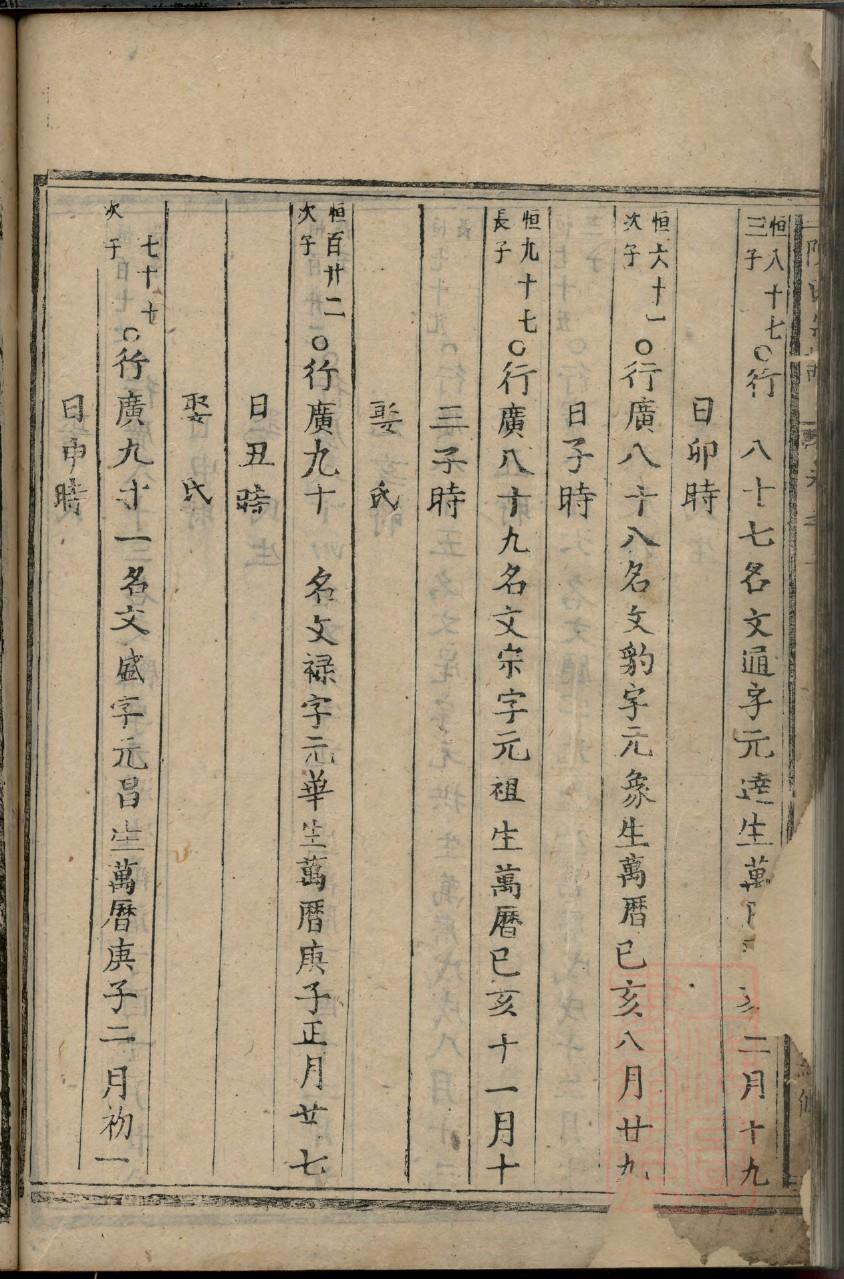 恒八十七三子○行 八十七名文通字元達生萬 亥二月十九
日卯時
恒六十一次子○行廣八十八名文豹字元象生萬曆己亥八月廿九
日子時
恒九十七長子○行廣八十九名文宗字元祖生萬曆己亥十一月十
三子時
娶 氏
恒百廿二次子○行廣九十 名文祿字元華生萬曆庚子正月廿七
日丑時
娶 氏
七十七次子○行廣九十一名文盛字元昌生萬曆庚子二月初一
日申時